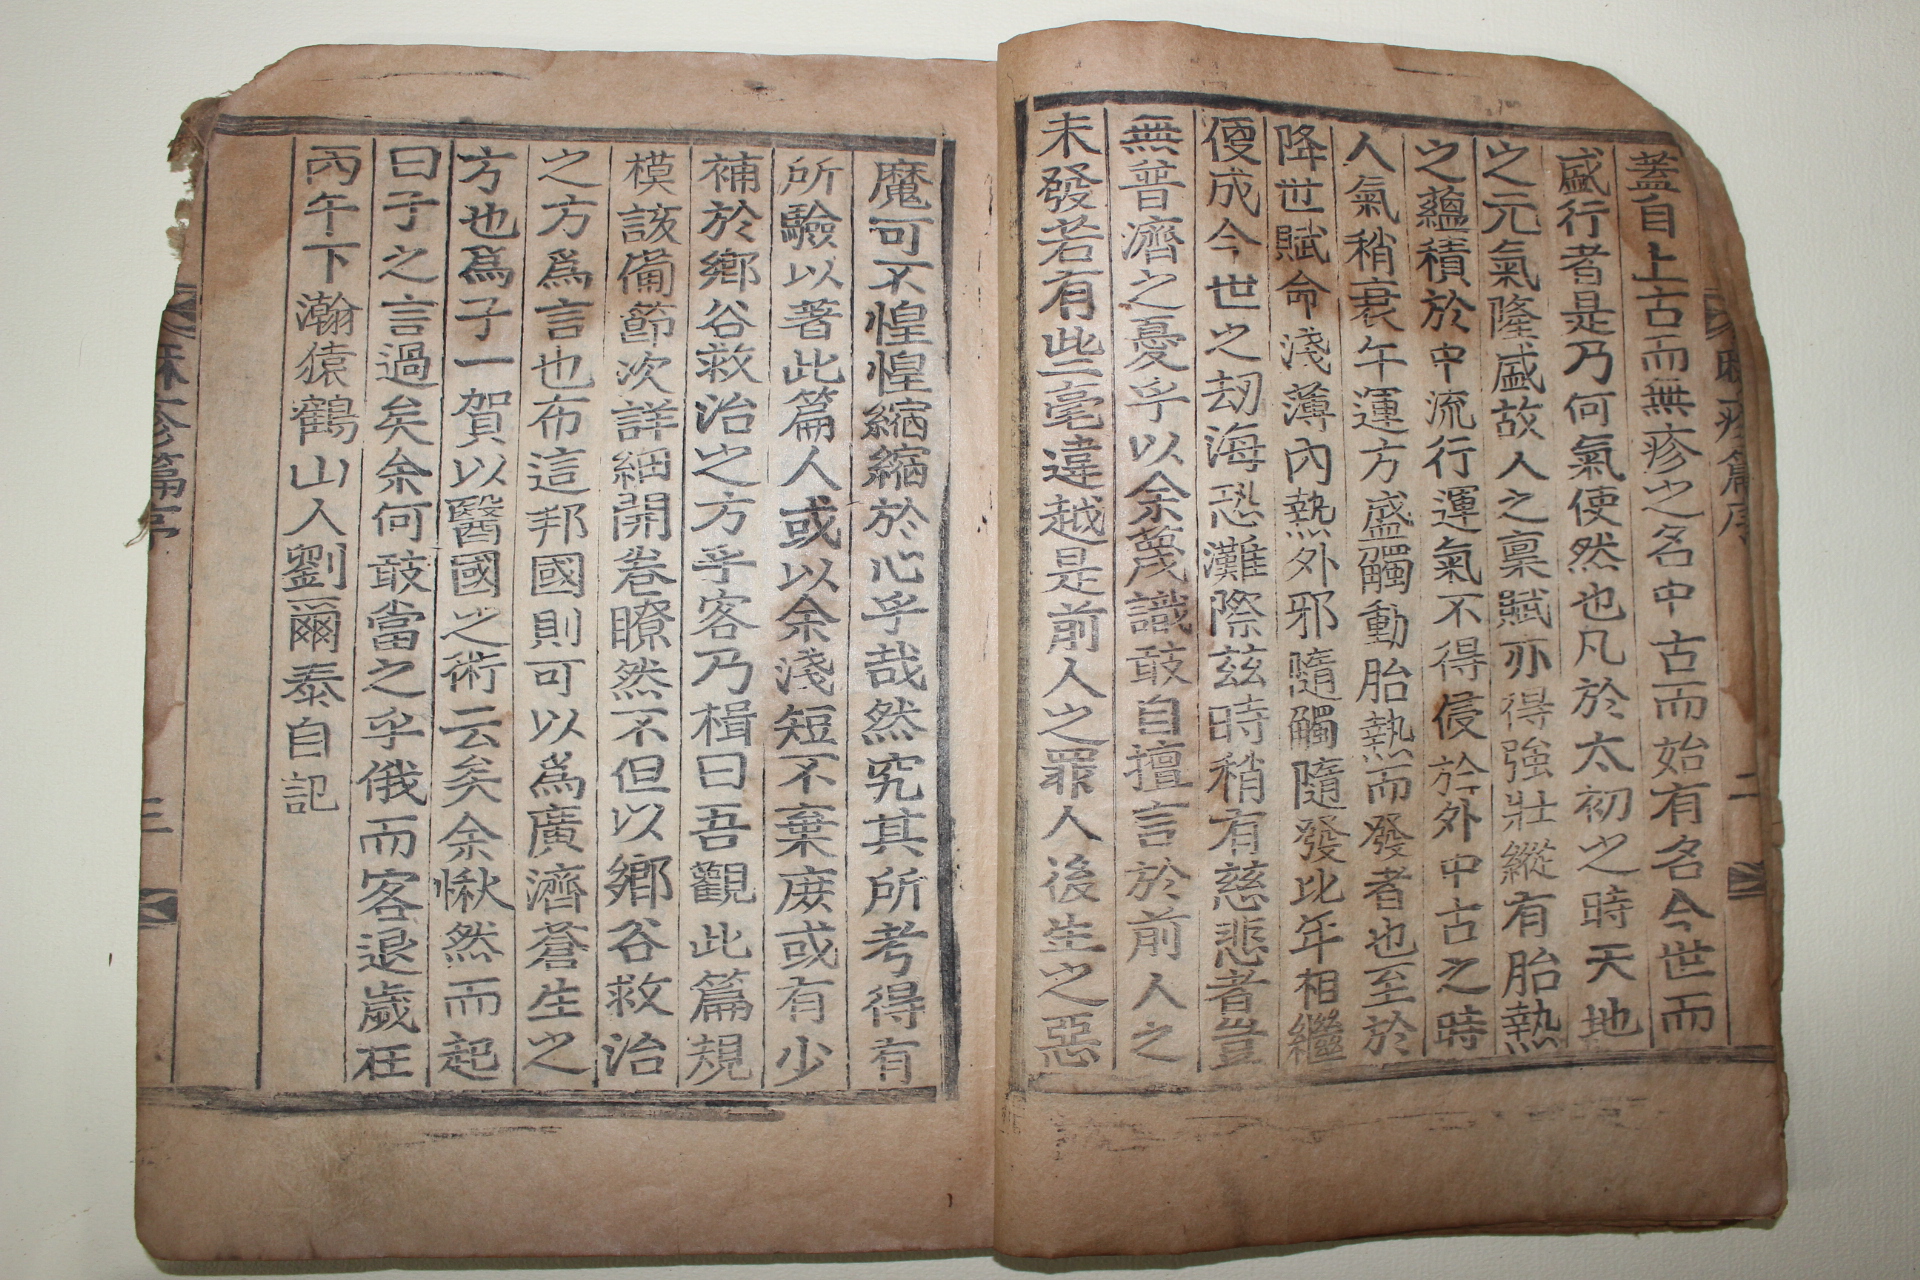 麻疹篇序
二
蓋自上古而無疹之名中古而始有名今世而
盛行者是乃何氣使然也凡於太初之時天地
之元氣隆盛故人之稟賦亦得強壯縱有胎熱
之蘊積於中流行運氣不得侵於外中古之時
人氣稍衰午運方盛觸動胎熱而發者也至於
降世賦命淺薄內熱外邪隨觸隨發比年相繼
便成今世之刼海恐灘際茲時稍有慈悲者豈
無普濟之憂乎以余蔑識敢自擅言於前人之
未發若有些毫違越是前人之罪人後生之惡
魔可不惶惶縮縮於心乎哉然究其所考得有
所驗以著此篇人或以余淺短不棄庻或有少
補於鄉谷救治之方乎客乃楫曰吾觀此篇規
模該備節次詳細開卷瞭然不但以鄉谷救治
之方為言也布這邦國則可以為廣濟蒼生之
方也爲子一賀以醫國之術云矣余愀然而起
曰子之言過矣余何敢當之乎俄而客退歲在
丙午下瀚猿鶴山人劉爾泰自記
麻疹篇序
三